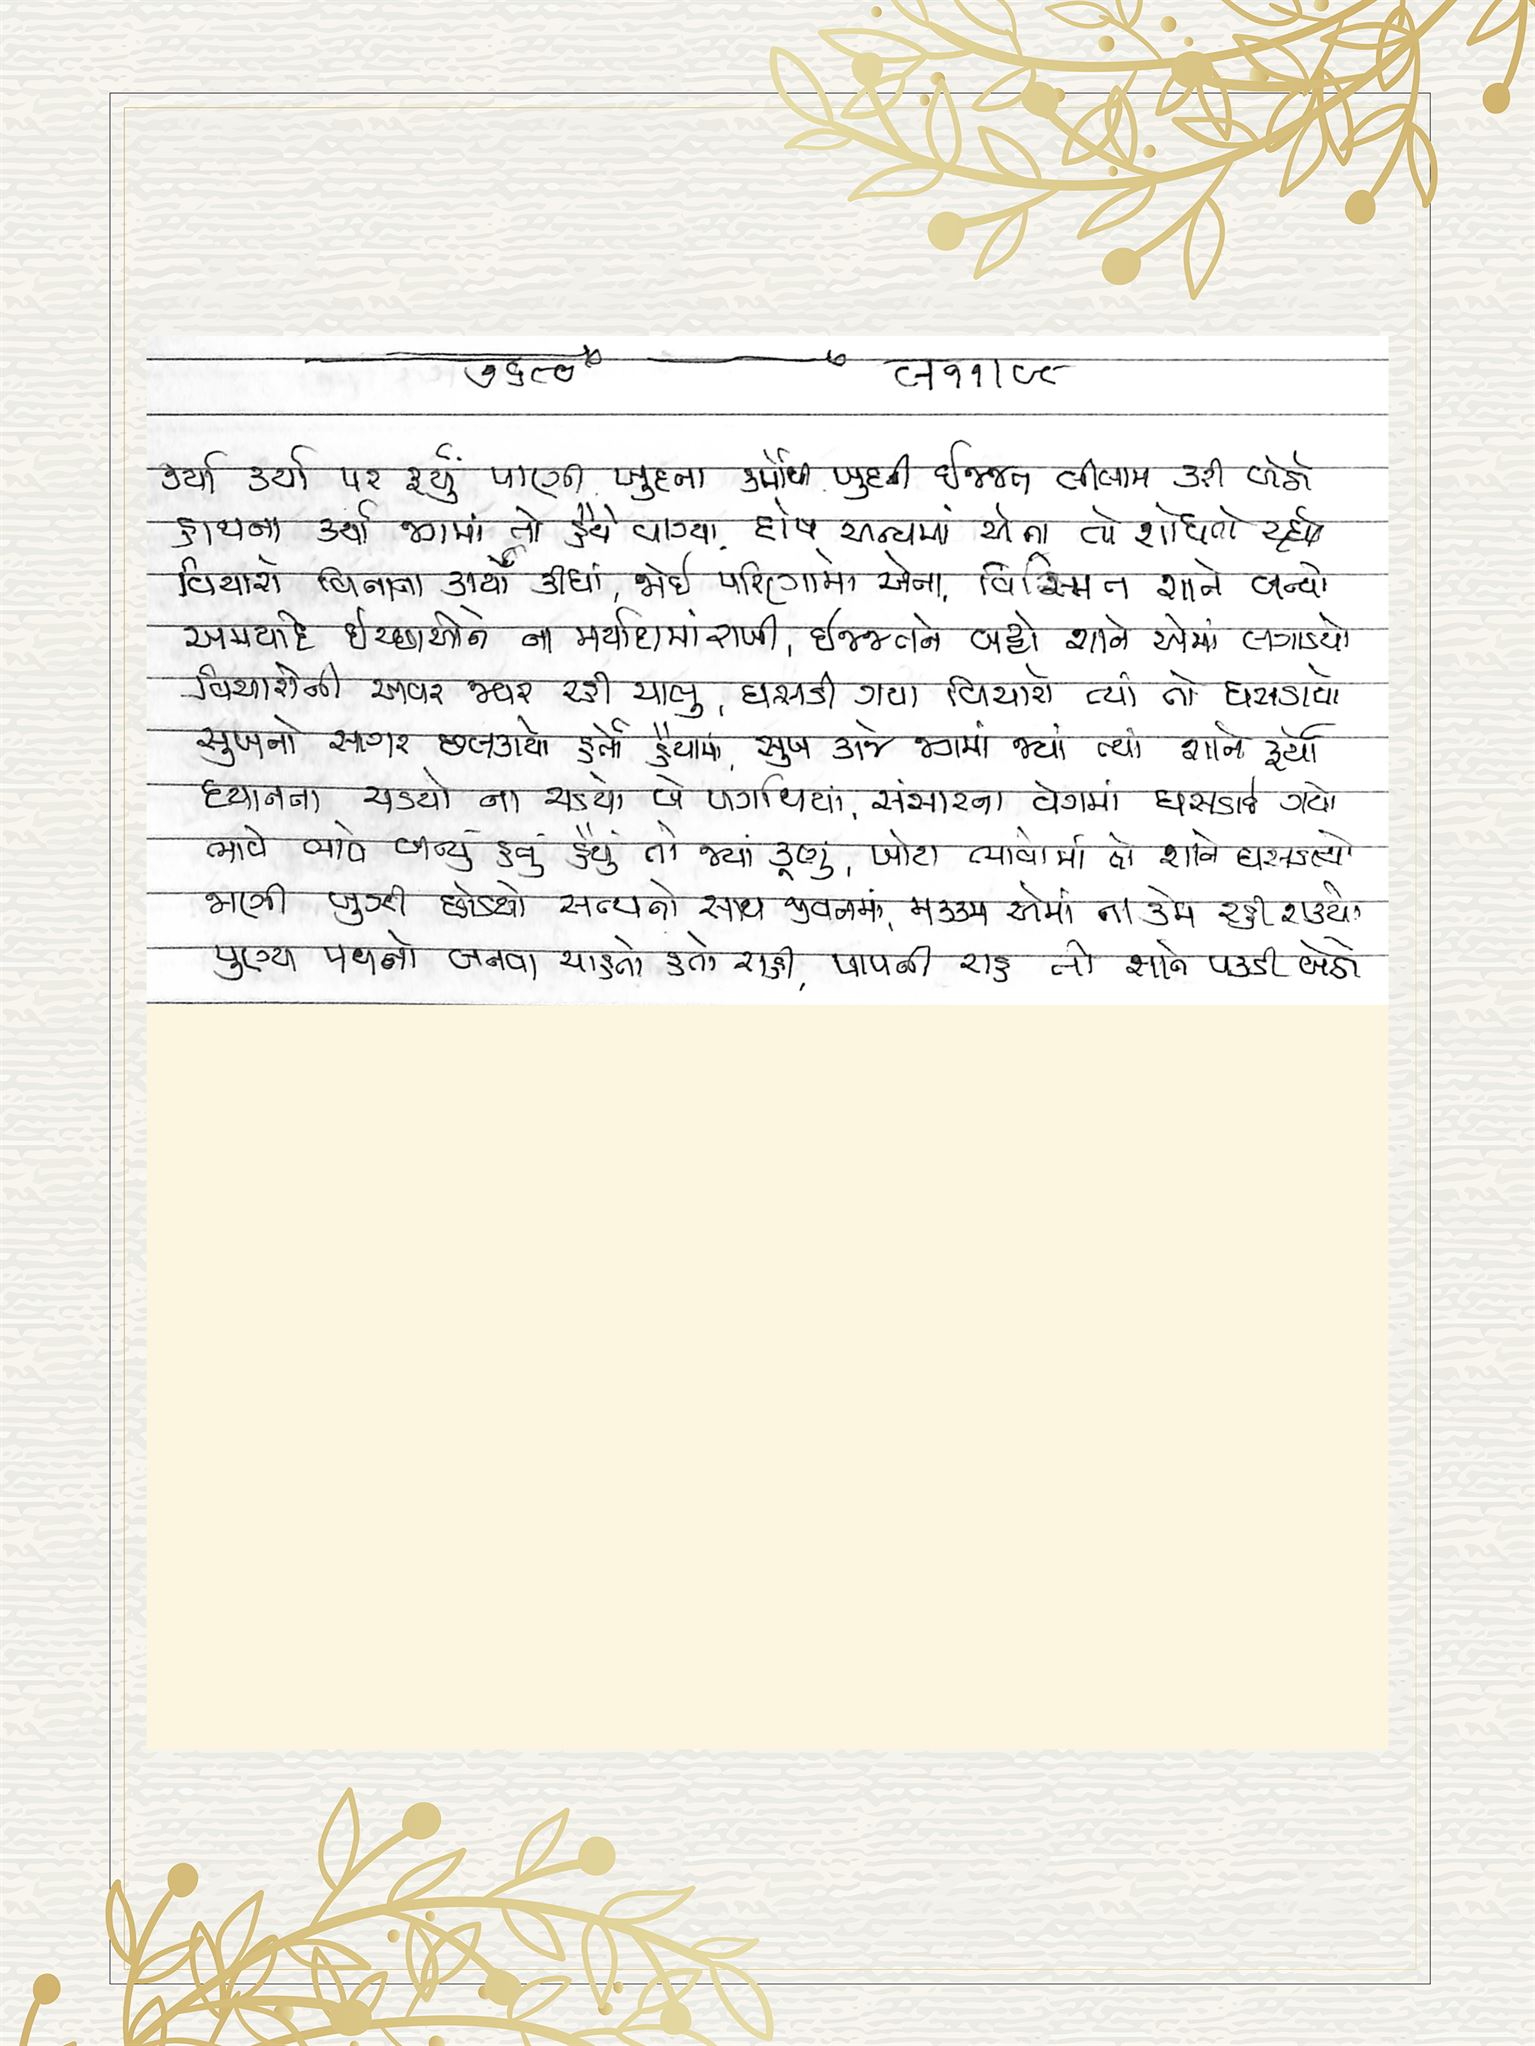 ૭૬૮૭ ૮૧૧૧૮૯
કર્યા કર્યા પર ફર્યું પાણી ખુદના કર્મોથી ખુદની ઈજ્જત લીલામ કરી બેઠો
હાથના કર્યા જગમાં તો હૈયે વાગ્યા, દોષ અન્યમાં એના તો શોધતો રહ્યો
વિચારો વિનાના કાર્યો કીધાં, જોઈ પરિણામો એના, વિસ્મિત શાને બન્યો
અમર્યાદિ ઈચ્છાઓને ના મર્યાદામાં રાખી, ઈજ્જતને બટ્ટો શાને એમાં લગાડયો
વિચારોની અવર જ્વર રહી ચાલુ, ઘસડી ગયા વિચારો ત્યાં તો ઘસડાયો
સુખનો સાગર છલકાયો હતો હૈયામાં, સુખ કાજે જગમાં જ્યાં ત્યાં શાને ફર્યો
ધ્યાનના ચડયો ના ચડયો બે પગથિયાં, સંસારના વેગમાં ઘસડાઈ ગયો
ભાવે ભાવે બન્યું હતું હૈયું તો જ્યાં કૂણું, ખોટા ભાવોમાં તો શાને ઘસડાયો
જાણી જુણી છોડયો સત્યનો સાથ જીવનમાં, મક્કમ એમાં ના કેમ રહી શક્યો
પુણ્ય પથનો બનવા ચાહતો હતો રાહી, પાપની રાહ તો શાને પકડી બેઠો